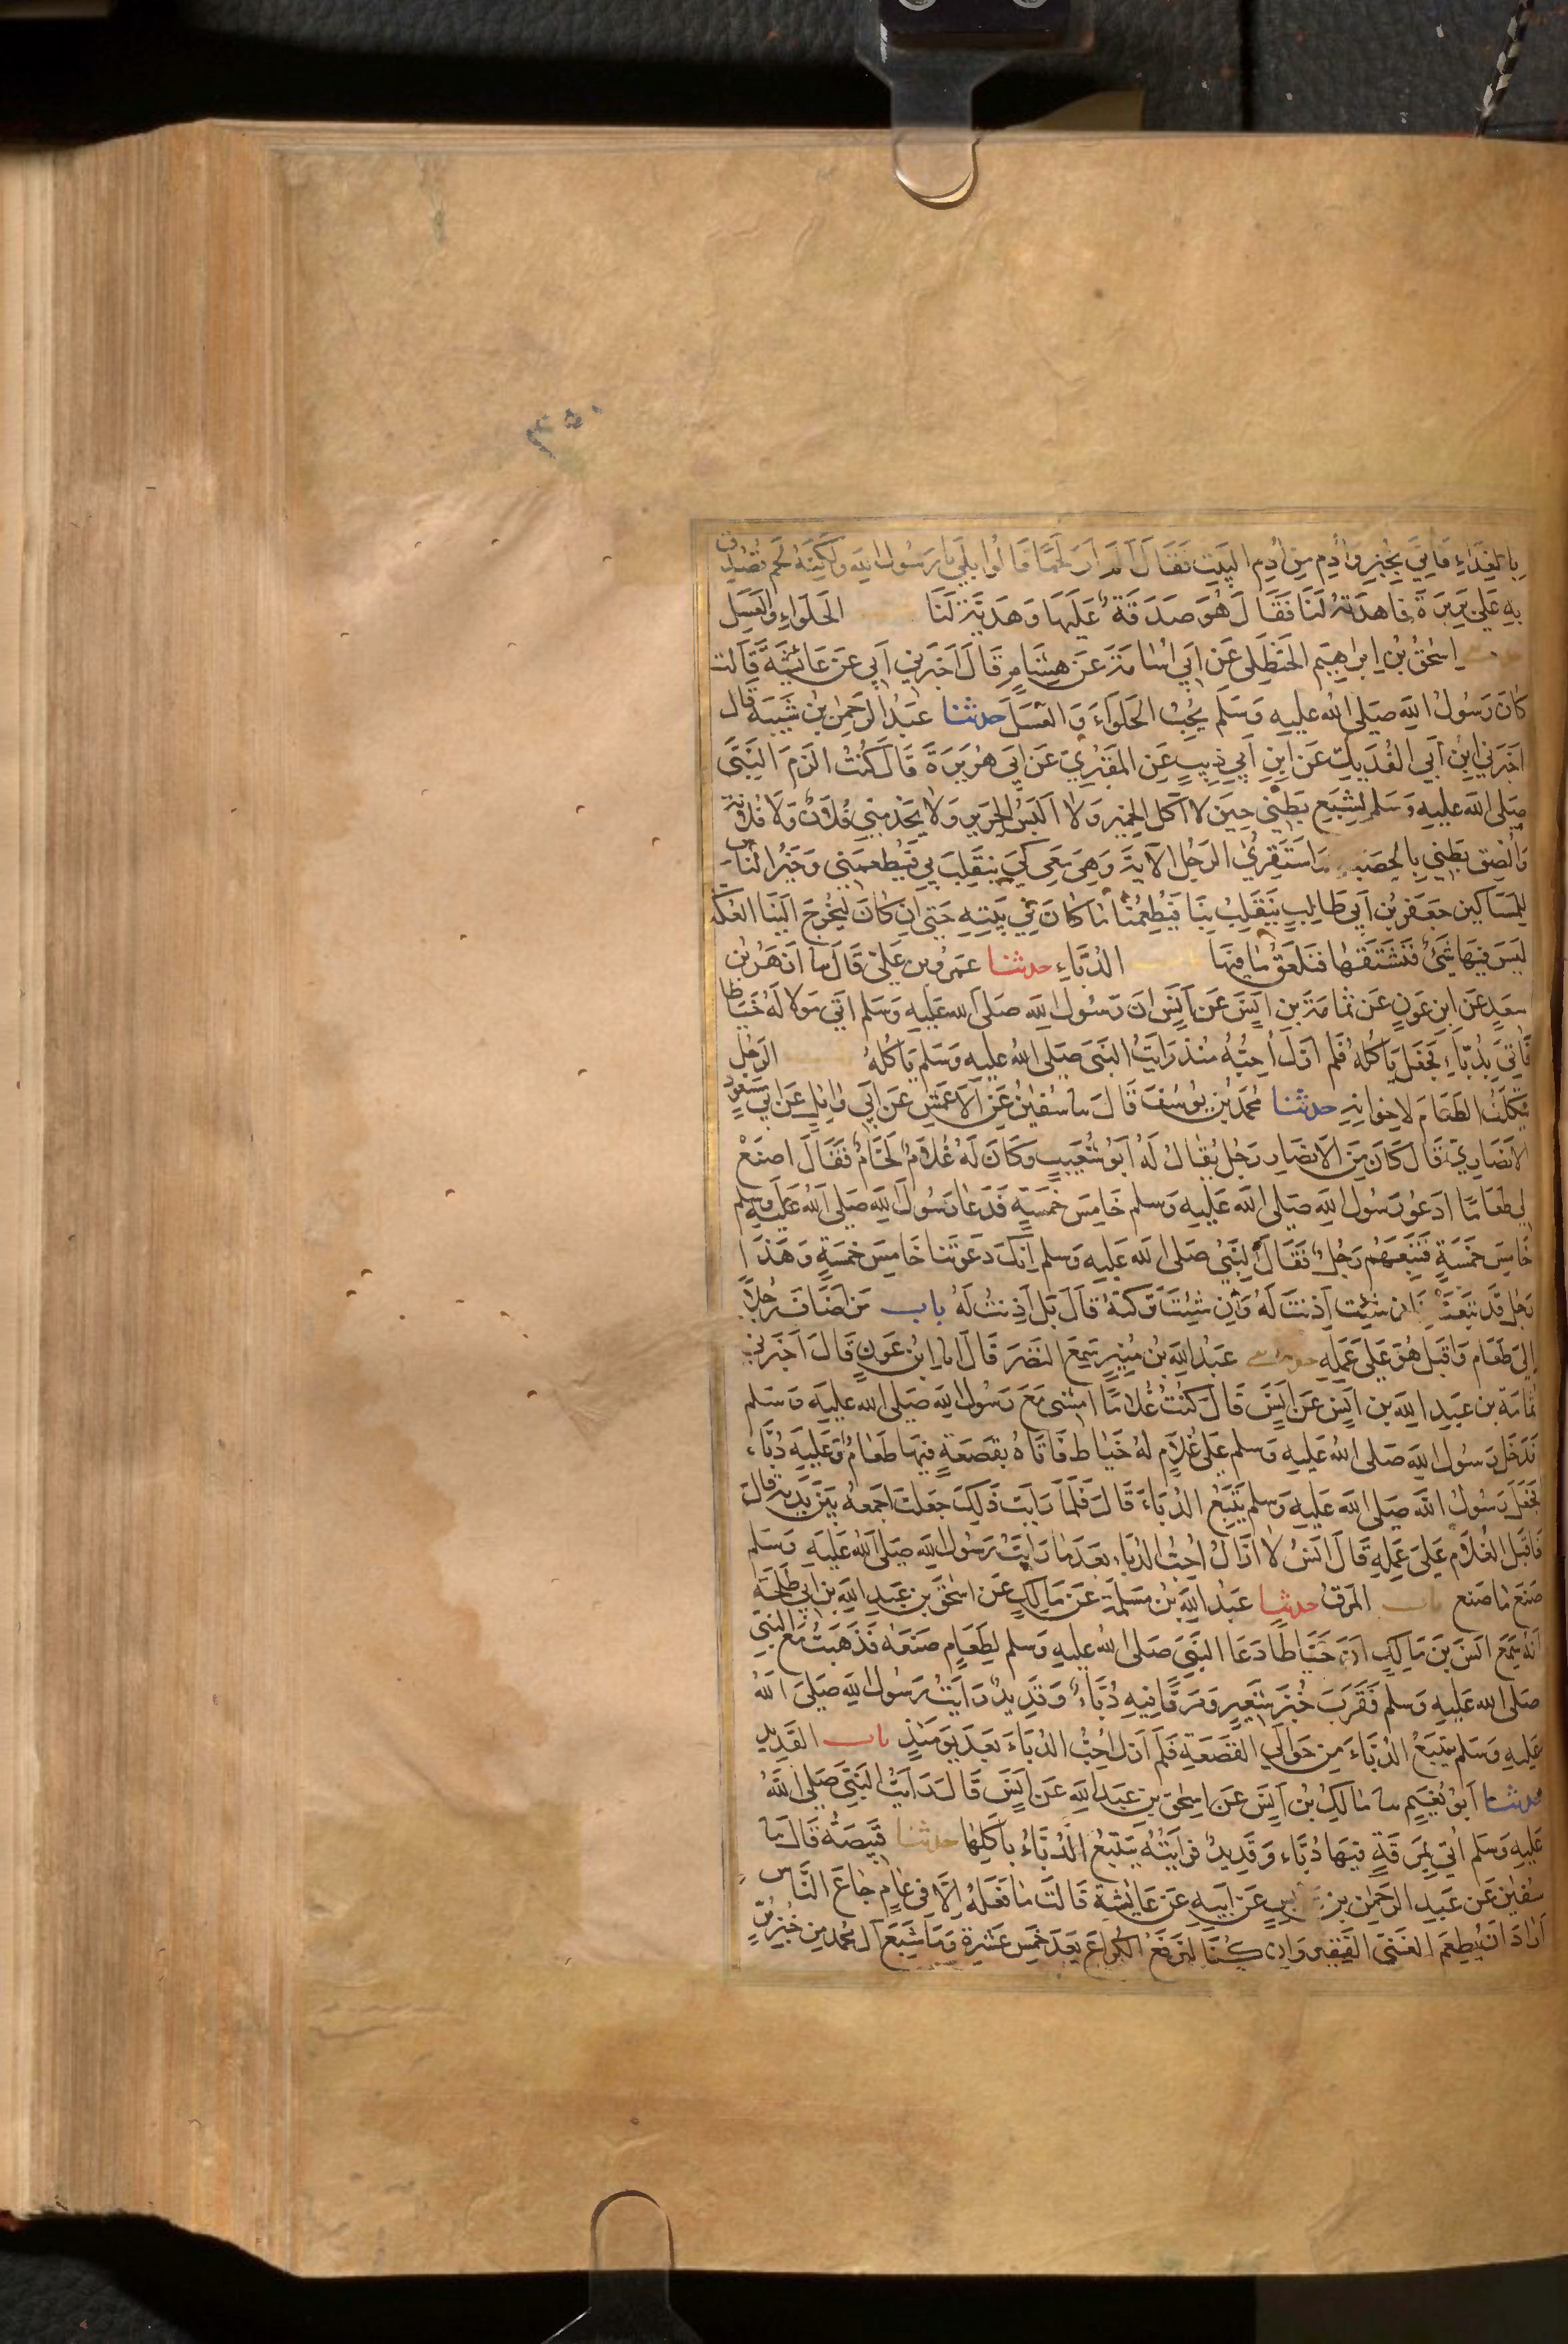 ٣٥٠
بِالغَدَاءِ فَأُتِيَ بِخُبزٍ وَأُدمٍ مِن أُدمِ البَيتِ فَقَالَ أَلَم أَرَ لَحمًا قَالُوا بَلَى يَا رَسُولَ اللهِ وَلَكِنَّهُ لَحمٌ تُصُدِّقَ
بِهِ عَلَى بَرِيرَةَ فَاهدَتهُ لَنَا فَقَالَ هُوَ صَدَقَةٌ عَلَيهَا وَهَدِيَّةٌ لَنَا الحَلوَاءِ وَالعَسَلِ
اِسحٰقُ بنُ اِبرَاهِيمَ الحَنظَلِي عَن اَبِي اُسَامَةَ عَن هِشَامٍ قَالَ اَخبَرَنِي اَبِي عَن عَائِشَةَ قَالَت
كَانَ رَسُولُ اللهِ صَلى الله عليهِ وَسَلَّم يُحِبُّ الحَلوَاءَ وَالعَسَلَ حدثنا عَبدُ الرَحمٰنِ بنُ شَيبَةَ قَالَ
اَخبَرَنِي ابنُ اَبِي الفُدَيكِ عَنِ ابنِ اَبِي ذِيبٍ عَنِ المَقبُرِيِّ عَن اَبِي هُرَيرَةَ قَالَ كُنتُ اَلزَمُ النَّبِيَّ
صَلى الله عليهِ وَسَلم لِشِبَعِ بَطنِي حِينَ لا آكُلُ الخَمِيرَ وَلا اَلبَسُ الحَرِيرَ وَلا يَخدِمُنِي فُلانٌ وَلا فُلانَةُ
وَاُلصِقُ بَطنِي بِالحَصبَاءِ وَاَستَقرِئُ الرَجُلَ الآيَةَ وَهِيَ مَعِي كَي يَنقَلِبَ بِي فَيُطعِمَنِي وَخَيرُ النَّاسِ
لِلمَسَاكِينِ جَعفَرُ بنُ اَبِي طَالِبٍ يَنقَلِبُ بِنَا فَيُطعِمُنَا مَا كَانَ فِي بَيتِهِ حَتَى اِن كَانَ لَيُخرِجُ اِلَينَا العُكَّةَ
لَيسَ فِيهَا شَيءٌ فَنَشتَفُّهَا فَنَلعَقُ مَا فِيهَا الدُبَّاءِ حدثنا عَمرُو بنُ عَلِيٍّ قَالَ سا اَزهَرُ بنُ
سَعدٍ عَنِ ابنِ عَونٍ عَن ثُمَامَةَ بنِ اَنَسٍ عَن اَنَسٍ اَنَّ رَسُولَ اللهِ صَلى الله عَليهِ وَسَلم اَتَى مَولًا لَهُ خَيَّاطًا
فَاُتِيَ بِدُبَّاءٍ فَجَعَلَ يَاكُلُهُ فَلَم اَزَل اُحِبُّهُ مُنذُ رَاَيتُ النَّبِيَّ صَلى الله عليهِ وَسَلم يَاكُلُهُ الرَجُلِ
يَتَكَلَّفُ الطَعَامَ لِاِخوَانِهِ حدثنا مُحَمَدُ بنُ يُوسُفَ قَالَ سا سُفيٰنُ عَنِ الاَعمَشِ عَن اَبِي وَائِلٍ عَن اَبِي مَسعُودٍ
الاَنصَارِيِّ قَالَ كَانَ مِنَ الاَنصَارِ رَجُلٌ يُقَالُ لَهُ اَبُو شُعَيبٍ وَكَانَ لَهُ غُلامٌ لَحَّامٌ فَقَالَ اصنَع
لِي طَعَامًا اَدعُو رَسُولَ اللهِ صَلى الله عَليهِ وَسلم خَامِسَ خَمسَةٍ فَدَعَا رَسُولَ اللهِ صَلى الله عَليهِ وَسلم
خَامِسَ خَمسَةٍ فَتَبِعَهُم رَجُلٌ فَقَالَ النَّبِيُّ صَلى الله عَليهِ وَسلم اِنَّكَ دَعَوتَنَا خَامِسَ خَمسَةٍ وَهَذَا
رَجُلٌ قَد تَبِعَنَا فَاِن شِئتَ اَذِنتَ لَهُ وَاِن شِئتَ تَرَكتَهُ قَالَ بَل اَذِنتُ لَهُ باب مَن اَضَافَ رَجُلًا
اِلَى طَعَامٍ وَاَقبَلَ هُوَ عَلَى عَمَلِهِ حدثني عَبدُ اللهِ بنُ مُنِيرٍ سَمِعَ النَضرَ قَالَ انا ابنُ عَونٍ قَالَ اَخبَرَنِي
ثُمَامَةُ بنُ عَبدِ اللهِ بنِ اَنَسٍ عَن اَنَسٍ قَالَ كُنتُ غُلامًا اَمشِي مَعَ رَسُولِ اللهِ صَلى الله عليهِ وَسَلم
فَدَخَلَ رَسُولُ اللهِ صَلى الله عليهِ وَسلم عَلَى غُلامٍ لَهُ خَيَّاطٍ فَاَتَاهُ بِقَصعَةٍ فِيهَا طَعَامٌ وَعَلَيهِ دُبَّاءٌ
فَجَعَلَ رَسُولُ اللهِ صَلى الله عَليهِ وَسلم يَتَتَبَّعُ الدُبَّاءَ قَالَ فَلَمَّا رَاَيتُ ذَلِكَ جَعَلتُ اَجمَعُهُ بَينَ يَدَيهِ قَالَ
فَاَقبَلَ الغُلامُ عَلَى عَمَلِهِ قَالَ اَنَسٌ لا اَزَالُ اُحِبُّ الدُبَّاءَ بَعدَ مَا رَاَيتُ رَسُولَ اللهِ صَلى الله عَليهِ وَسَلم
صَنَعَ مَا صَنَعَ باب المَرَقِ حدثنا عَبدُ اللهِ بنُ مَسلَمَةَ عَن مَالِكٍ عَن اِسحٰقَ بنِ عَبدِ اللهِ بنِ اَبِي طَلحَةَ
اَنَّهُ سَمِعَ اَنَسَ بنَ مَالِكٍ اَنَّ خَيَّاطًا دَعَا النَّبِيَّ صَلى الله عليهِ وَسلم لِطَعَامٍ صَنَعَهُ فَذَهَبتُ مَعَ النَّبِيِّ
صَلى الله عَليهِ وَسلم فَقَرَّبَ خُبزَ شَعِيرٍ وَمَرَقًا فِيهِ دُبَّاءٌ وَقَدِيدٌ رَاَيتُ رَسُولَ اللهِ صَلى الله
عَليهِ وَسَلم يَتَتَبَّعُ الدُبَّاءَ مِن حَوَالَيِ القَصعَةِ فَلَم اَزَل اُحِبُّ الدُبَّاءَ بَعدَ يَومَئِذٍ باب القَدِيدِ
حدثنا اَبُو نُعَيمٍ سا مَالِكُ بنُ اَنَسٍ عَن اِسحٰقَ بنِ عَبدِ اللهِ عَن اَنَسٍ قَالَ رَاَيتُ النَّبِيَّ صَلى الله
عَليهِ وَسَلم اُتِيَ بِمَرَقَةٍ فِيهَا دُبَّاءٌ وَقَدِيدٌ فَرَاَيتُهُ يَتَتَبَّعُ الدُبَّاءَ يَاكُلُهَا حدثنا قَبِيصَةُ قَالَ سا
سُفيٰنُ عَن عَبدِ الرَحمٰنِ بنِ عَابِسٍ عَن اَبِيهِ عَن عَائِشَةَ قَالَت مَا فَعَلَهُ اِلَّا فِي عَامٍ جَاعَ النَّاسُ
اَرَادَ اَن يُطعِمَ الغَنِيُّ الفَقِيرَ وَاِن كُنَّا لَنَرفَعُ الكُرَاعَ بَعدَ خَمسَ عَشرَةَ وَمَا شَبِعَ آلُ مُحَمدٍ مِن خُبزِ بُرٍّ